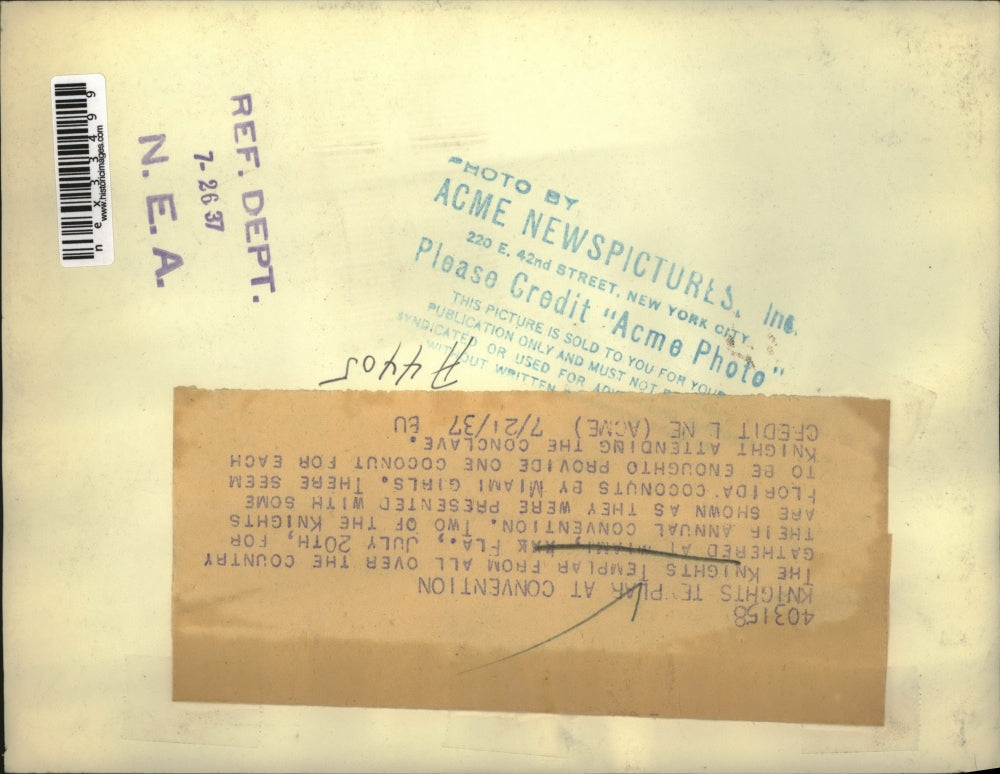 nex33499
www.historicimages.com
REF. DEPT.
7-26 37
N. E. A.
PHOTO BY
ACME NEWSPICTURES, Inc.
220 E. 42nd STREET, NEW YORK CITY
Please Credit "Acme Photo"
THIS PICTURE IS SOLD TO YOU FOR YOUR
PUBLICATION ONLY AND MUST NOT BE
SYNDICATED OR USED FOR ADVE
WITHOUT WRITTEN
#4405
403158
KNIGHTS TEMPLAR AT CONVENTION
THE KNIGHTS TEMPLAR FROM ALL OVER THE COUNTRY
GATHERED AT MIAMI, FLA., JULY 20TH, FOR
THEIR ANNUAL CONVENTION. TWO OF THE KNIGHTS
ARE SHOWN AS THEY WERE PRESENTED WITH SOME
FLORIDA COCONUTS BY MIAMI GIRLS. THERE SEEM
TO BE ENOUGHTO PROVIDE ONE COCONUT FOR EACH
KNIGHT ATTENDING THE CONCLAVE.
CREDIT L NE (ACME) 7/21/37 EU